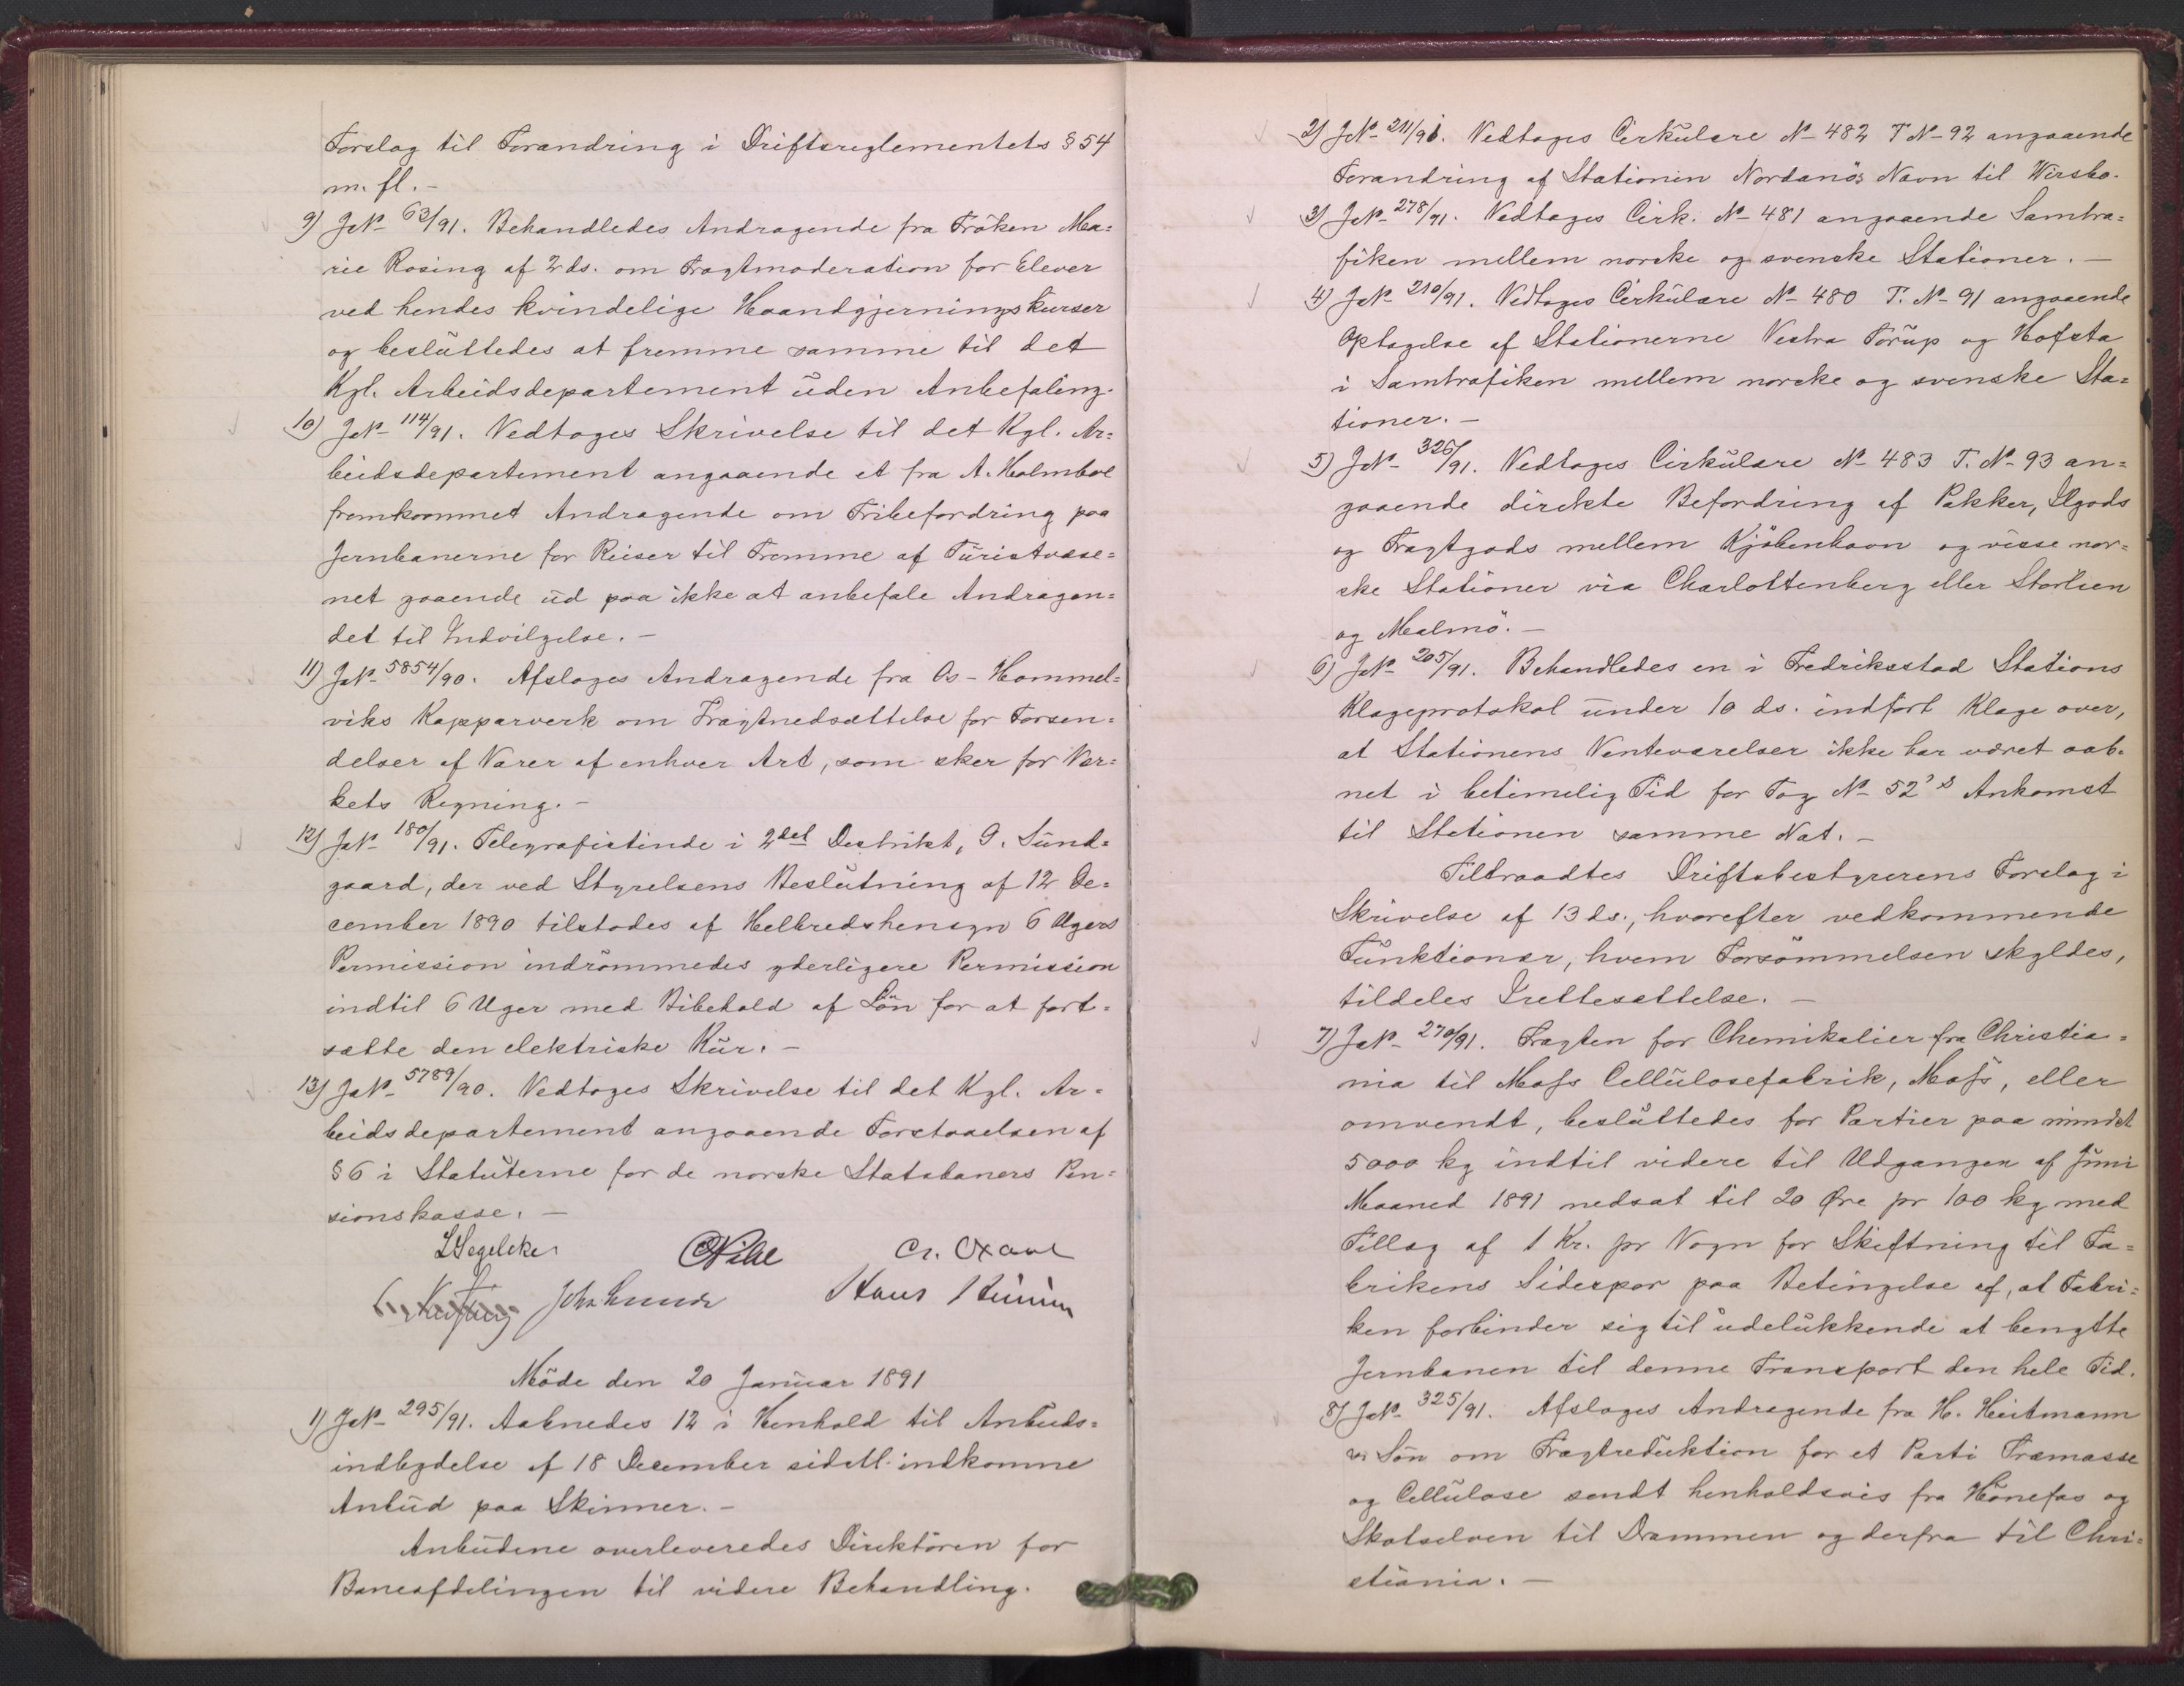 Forslag til Forandring i Driftsreglementets § 54
m. fl. –
9) JN° 63/91. Behandledes Andragende fra Fröken Ma=
rie Rosing af 2 ds. om Fragtmoderation for Elever
ved hendes kvindelige Haandgjerningskurser
og besluttedes at fremme samme til det
Kgl. Arbeidsdepartement uden Anbefaling.
10) JN° 114/91. Vedtoges Skrivelse til det Kgl. Ar=
beidsdepartement angaaende et fra A. Holmboe
fremkommet Andragende om Fribefordring paa
Jernbanerne for Reiser til Fremme af Turistvæse=
net gaaende ud paa ikke at anbefale Andragen=
det til Indvilgelse. –
11) JN° 5854/90. Afsloges Andragende fra Os-Hommel=
viks Kopparverk om Fragtnedsættelse for Forsen=
delser af Varer af enhver Art, som sker for Ver=
kets Regning. –
12) JN° 180/91. Telegrafistinde i 2det Distrikt, G. Sund=
gaard, der ved Styrelsens Beslutning af 12 De=
cember 1890 tilstodes af Helbredshensyn 6 Ugers
Permission indrömmedes yderligere Permission
indtil 6 Uger med Bibehold af Lön for at fort=
sætte den elektriske Kur. –
13) JN° 5789/90. Vedtoges Skrivelse til det Kgl. Ar=
beidsdepartement angaaende Forstaaelsen af
§ 6 i Statuterne for de norske Statsbaners Pen=
sionskasse. –
L Segelcke
Joh. Lunde
Möde den 20 Januar 1891
1) JN° 295/91. Aabnedes 12 i Henhold til Anbuds=
indbydelse af 18 December sidstl. indkomne
Anbud paa Skinner. –
Anbudene overleveredes Direktören for
Baneafdelingen til videre Behandling.
2) JN° 211/91. Vedtoges Cirkulære N° 482 T N° 92 angaaende
Forandring af Stationen Nordanös Navn til Wirsbo.
3) JN° 278/91. Vedtoges Cirk. N° 481 angaaende Samtra=
fiken mellem norske og svenske Stationer. –
4) JN° 210/91. Vedtoges Cirkulære N° 480 T. N° 91 angaaende
Optagelse af Stationerne Vestra Torup og Hofsta
i Samtrafiken mellem norske og svenske Sta=
tioner. –
5) JN° 326/91. Vedtoges Cirkulære N° 483 T. N° 93 an=
gaaende direkte Befordring af Pakker, Ilgods
og Fragtgods mellem Kjöbenhavn og visse nor=
ske Stationer via Charlottenberg eller Storlien
og Malmö. –
6) JN° 205/91. Behandledes en i Fredriksstad Stations
Klageprotokol under 10 ds. indfört Klage over,
at Stationens Venteværelser ikke har været aab=
net i betimelig Tid for Tog N° 52's Ankomst
til Stationen samme Nat. –
Tiltraadtes Driftsbestyrerens Forslag i
Skrivelse af 13 ds., hvorefter vedkommende
Funktionær, hvem Forsömmelsen skyldes,
tildeles Irettesættelse. –
7) JN° 270/91. Fragten for Chemikalier fra Christia=
nia til Moss Cellulosefabrik, Moss, eller
omvendt, besluttedes for Partier paa mindst
5000 kg indtil videre til Udgangen af Juni
Maaned 1891 nedsat til 20 Øre pr 100 kg med
Tillæg af 1 Kr. pr Vogn for Skiftning til Fa=
brikens Sidespor paa Betingelse af, at Fabri=
ken forbinder sig til udelukkende at benytte
Jernbanen til denne Transport den hele Tid.
8) JN° 325/91. Afsloges Andragende fra H. Heitmann
& Sön om Fragtreduktion for et Parti Træmasse
og Cellulose sendt henholdsvis fra Hönefos og
Skotselven til Drammen og derfra til Chri=
stiania. –